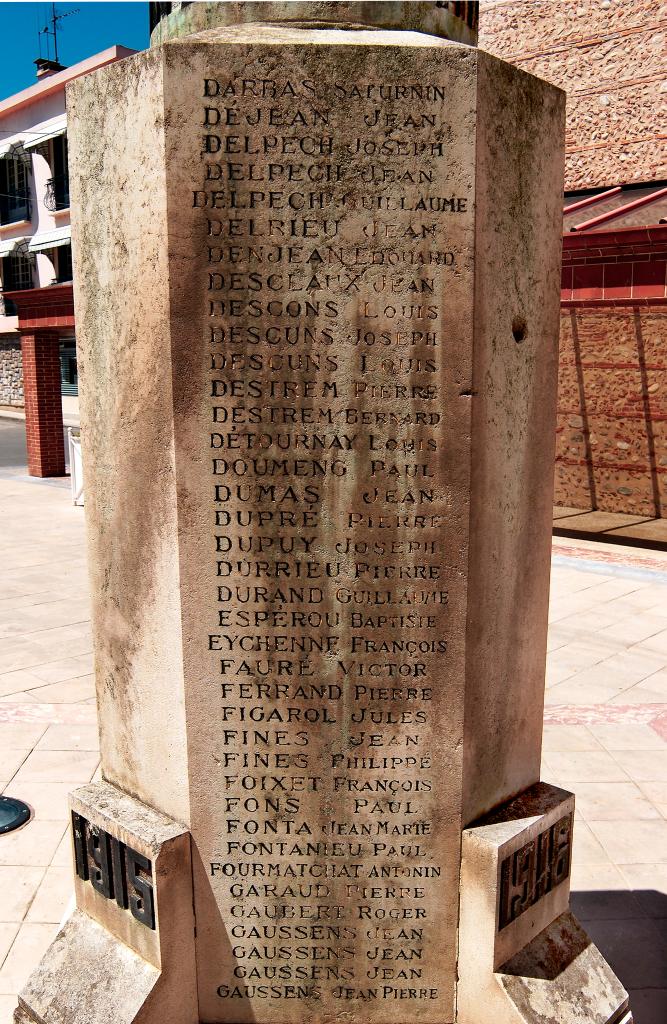 DARBAS SATURNIN
DÉJEAN JEAN
DELPECH JOSEPH
DELPECH JEAN
DELPECH GUILLAUME
DELRIEU JEAN
DENJEAN EDOUARD
DESCLAUX JEAN
DESCONS LOUIS
DESCUNS JOSEPH
DESCUNS LOUIS
DESTREM PIERRE
DESTREM BERNARD
DÉTOURNAY LOUIS
DOUMENG PAUL
DUMAS JEAN
DUPRÉ PIERRE
DUPUY JOSEPH
DURRIEU PIERRE
DURAND GUILLAUME
ESPÉROU BAPTISTE
EYCHENNE FRANÇOIS
FAURÉ VICTOR
FERRAND PIERRE
FIGAROL JULES
FINES JEAN
FINES PHILIPPE
FOIXET FRANÇOIS
FONS PAUL
FONTA JEAN MARIE
FONTANIEU PAUL
FOURMATCHAT ANTONIN
GARAUD PIERRE
GAUBERT ROGER
GAUSSENS JEAN
GAUSSENS JEAN
GAUSSENS JEAN
GAUSSENS JEAN PIERRE
1915